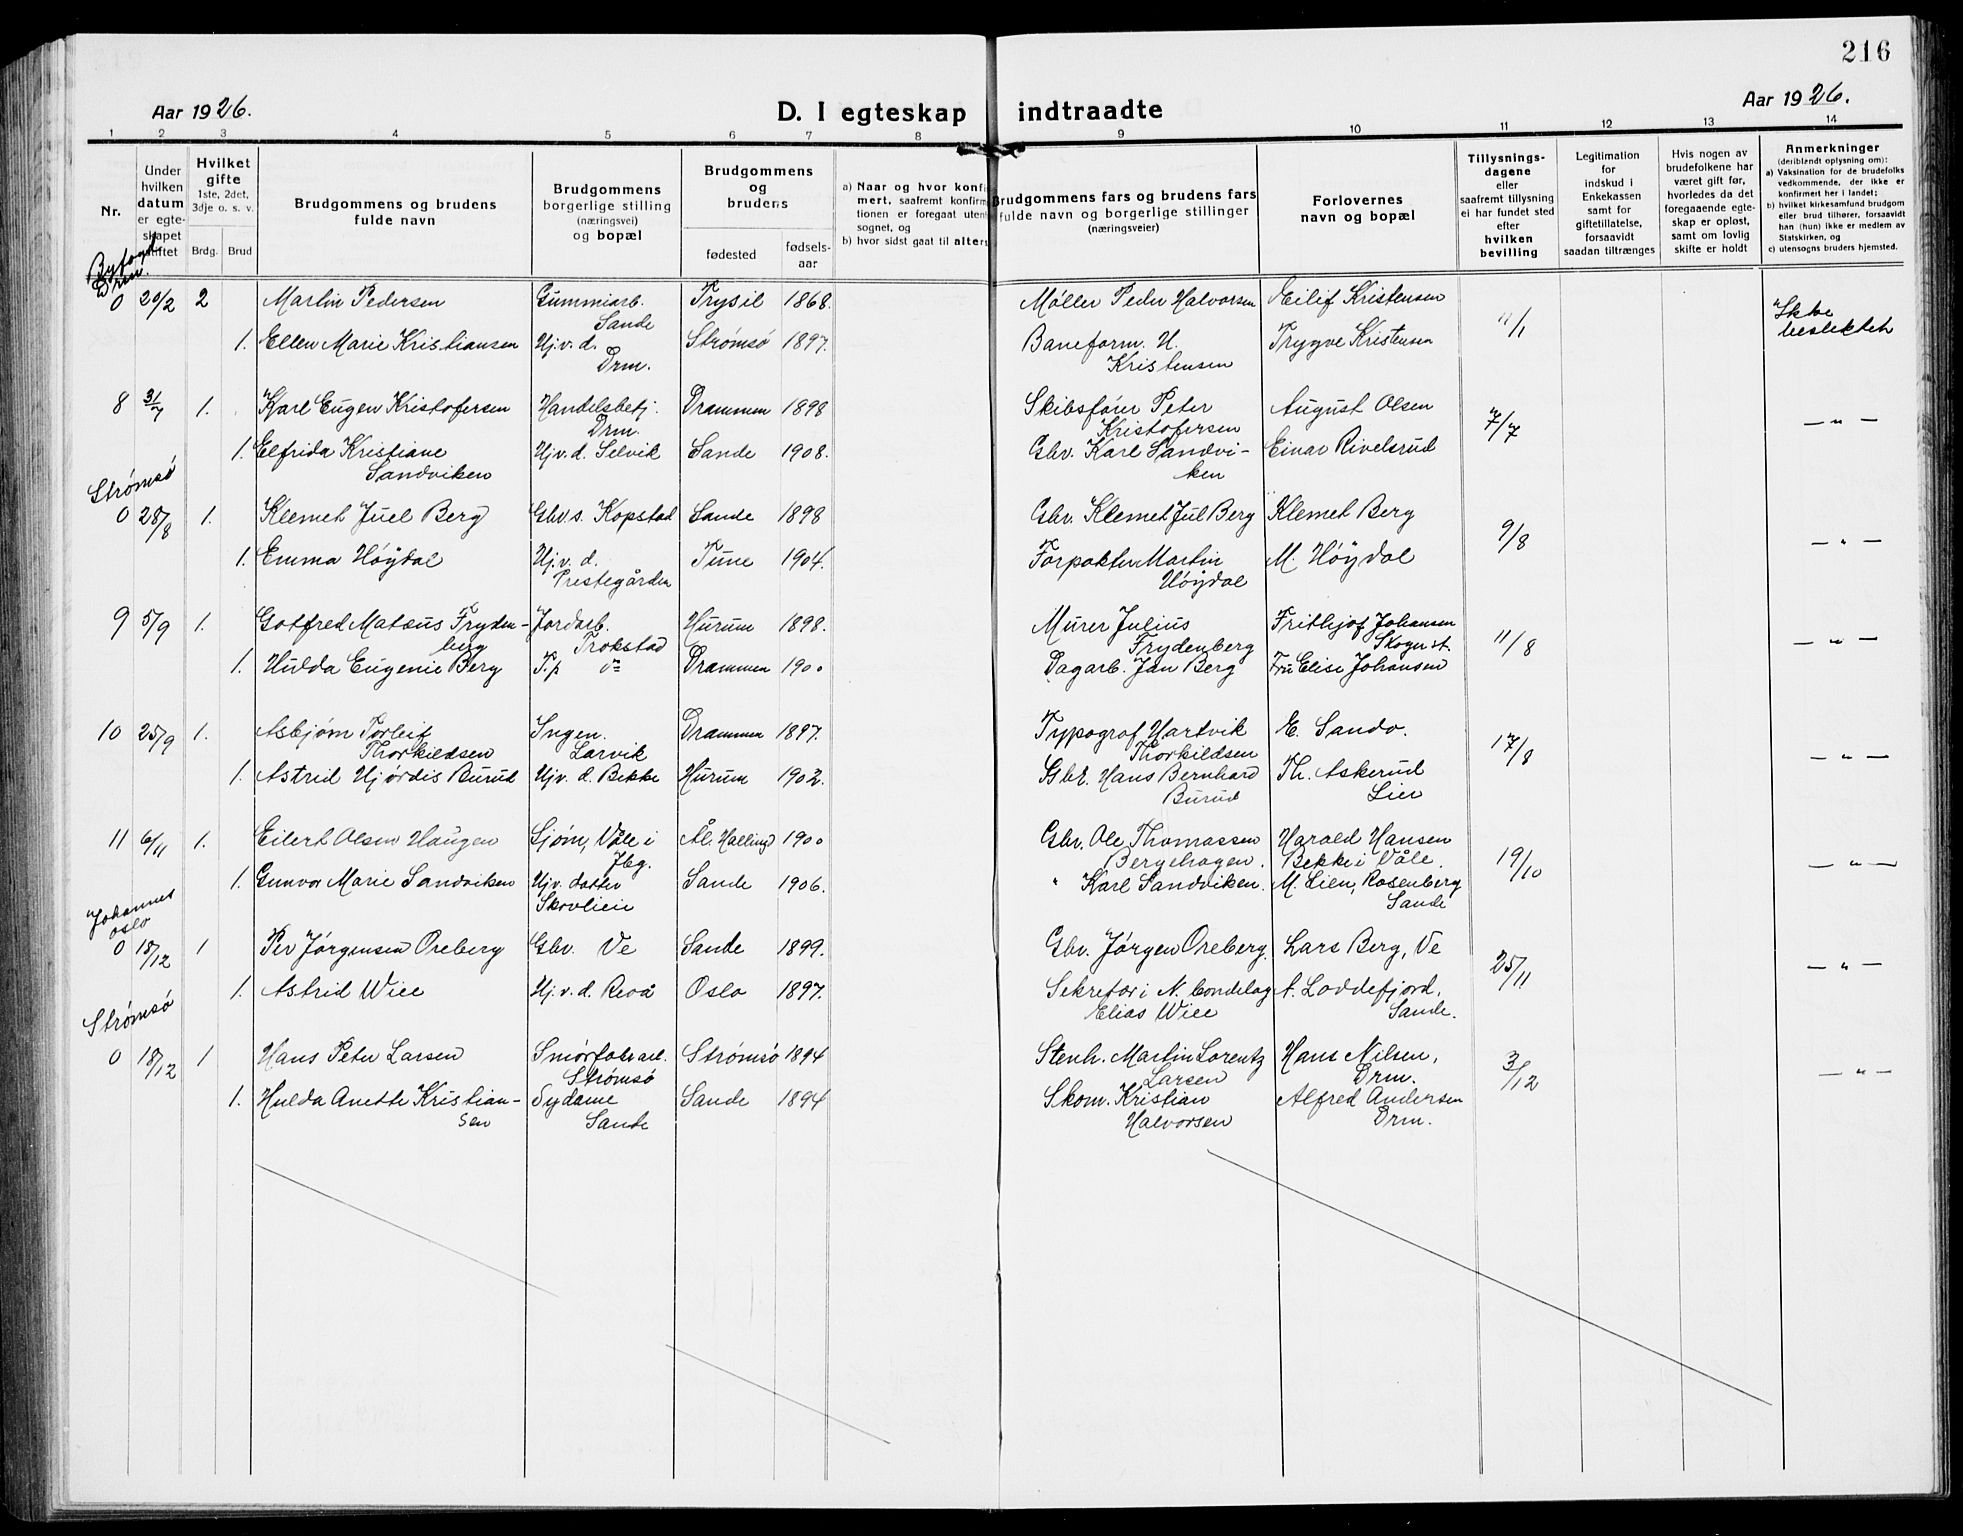 216
Aar 1926.
D. I egteskap indtraadte
Aar 1926.
1 2 3 4 5 6 7 8 9 10 11 12 13 14
Nr.
Under
hvilken
datum
er egte-
skapet
stiftet
Hvilket
gifte
1ste, 2det,
3dje o. s. v.
Brdg. Brud
Brudgommens og brudens
fulde navn
Brudgommens
borgerlige stilling
(næringsvei)
og bopæl
Brudgommens
og
brudens
fødested
fødsels-
aar
a) Naar og hvor konfir-
mert, saafremt konfirma-
tionen er foregaat utenfor
sognet, og
b) hvor sidst gaat til alters
Brudgommens fars og brudens fars
fulde navn og borgerlige stillinger
(næringsveier)
Forlovernes
navn og bopæl
Tillysnings-
dagene
eller
saafremt tillysning
ei har fundet sted
efter
hvilken
bevilling
Legitimation
for
indskud i
Enkekassen
samt for
giftetillatelse,
forsaavidt
saadan tiltrænges
Hvis nogen av
brudefolkene har
været gift før,
hvorledes da det
foregaaende egte-
skap er opløst,
samt om lovlig
skifte er holdt
Anmerkninger
(deriblendt oplysning om):
a) Vaksination for de brudefolks
vedkommende, der ikke er
konfirmert her i landet;
b) hvilket kirkesamfund brudgom
eller brud tilhører, forsaavidt
han (hun) ikke er medlem av
Statskirken, og
c) utensogns bruders hjemsted.
Byfogd
Drm.
0 20/2 2 Martin Pedersen Gummiarb. Trysil 1868. Møller Peder Halvorsen Eilif Kristensen
Sande 11/1 Ikke
beslektet
1. Ellen Marie Kristiansen Hj.v.d. Strømsø 1897. Baneform. H. Trygve Kristensen
Drm. Kristensen
8 31/7 1. Karl Eugen Kristofersen Handelsbetj. Drammen 1898 Skibsfører Peter August Olsen
Drm. Kristofersen 7/7 — " —
1. Elfrida Kristiane Hjv.d. Selvik Sande 1908. Gbr. Karl Sandvi- Einar Rivelsrud
Sandviken ken
Strømsø
0 28/8 1. Klemet Juel Berg Gbr.s. Kopstad Sande 1898 Gbr. Klemet Jul Berg Klemet Berg
9/8 — " —
1. Emma Höydal Hj.v.d. Tune 1904. Forpakter Martin M. Höydal
Prestegården Höydal
9 5/9 1. Gotfred Matæus Fryden- Jordarb. Hurum 1898. Murer Julius Frithjof Johansen
berg Trokstad Frydenberg Skogn st. 11/8 — " —
1. Hulda Eugenie Berg T.p do Drammen 1900 Dagarb. Jan Berg Fru Elise Johansen
10 25/9 1. Asbjørn Torleif Ingen. Drammen 1897. Typograf Hartvik E. Sando.
Thorkildsen Larvik Thorkildsen 17/8 — " —
1. Astrid Hjørdis Burud Hjv.d. Bekke Hurum 1902. Gbr. Hans Bernhard Th. Askerud
Burud Lier
11 6/11 1. Eilert Olsen Haugen Sjøm, Våle i Ål. Halling 1900 Gbr. Ole Thomassen Harald Hansen
Jbg. Bergehagen. Bekke i Våle. 19/10 — " —
1. Gunvor Marie Sandviken Hjv. datter Sande 1906. " Karl Sandviken. M. Lien, Rosenberg
Skovlien Sande
Johannes
Oslo
0 18/12 1 Per Jørgensen Oreberg Gbr. Ve Sande 1899. Gbr. Jørgen Oreberg. Lars Berg, Ve
25/11 — " —
1. Astrid Wiee Hj.v.d. Revå Oslo 1897. Sekretær i N. Bondelag A. Loddefjord,
Elias Wiee Sande.
Strømsø
0 18/12 1 Hans Peter Larsen Smörfabr arb. Strømsø 1894 Stenh. Martin Lorentz Hans Nilsen,
Strømsø Larsen Drm. 3/12 — " —
1. Hulda Anette Kristian- Sydame Sande 1894 Skom. Kristian Alfred Andersen
sen Sande Halvorsen Drm.